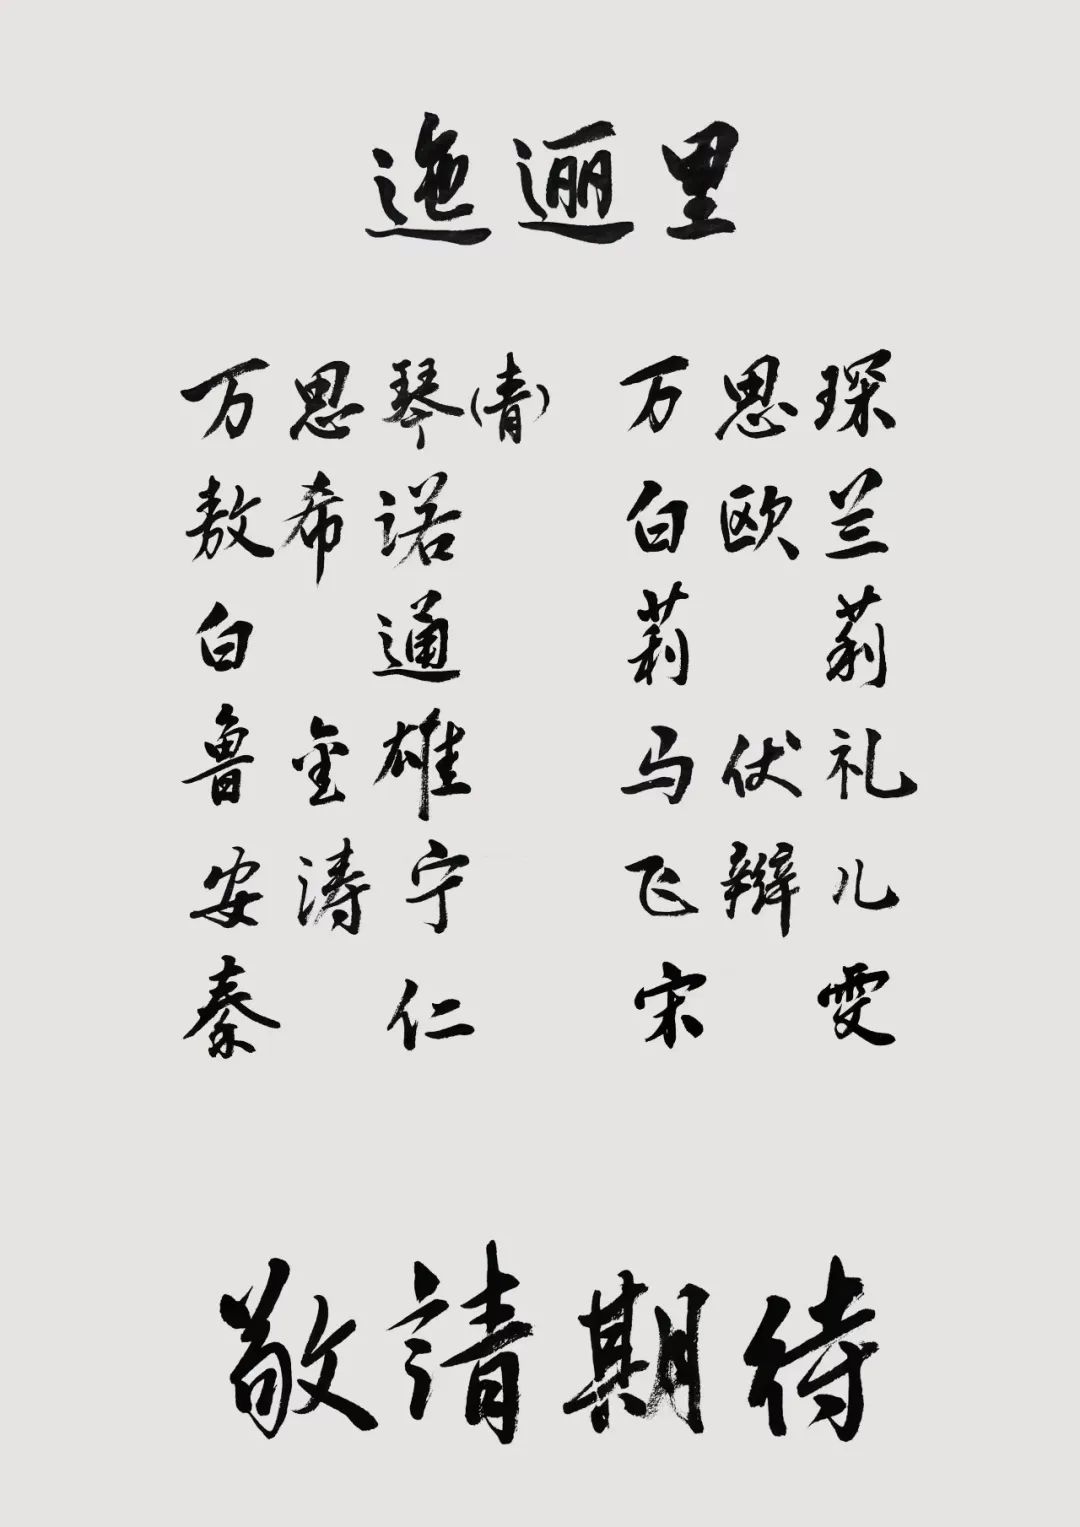 迤逦里
万思琴(青) 万思琛
敖希诺 白欧兰
白通 莉莉
鲁金雄 马伏礼
安涛宁 飞辫儿
秦仁 宋雯
敬请期待